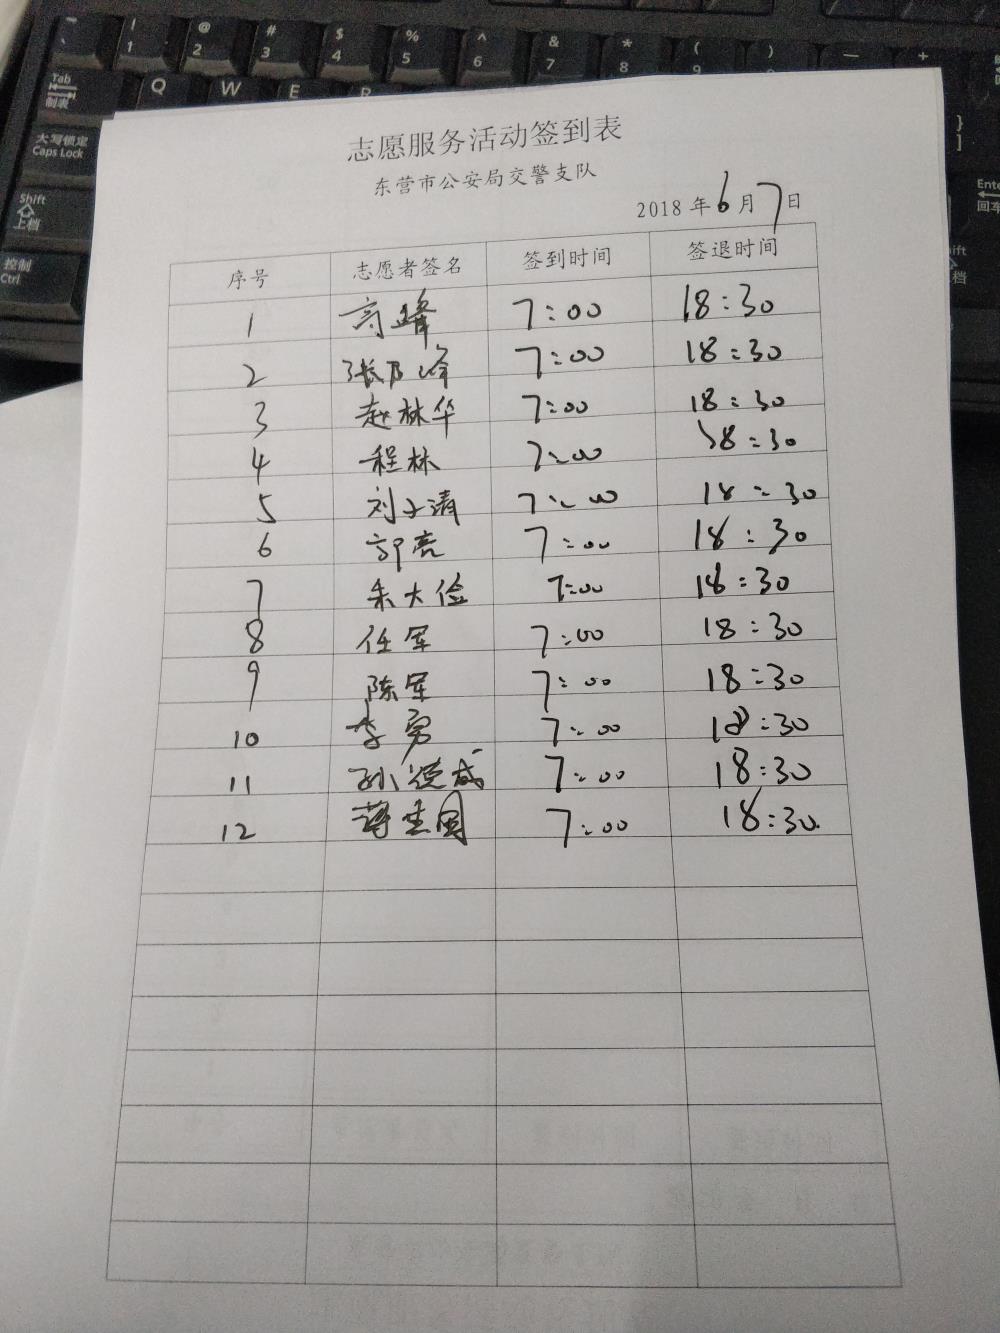 ~ ` ! 1 @ 2 # 3 $ 4 % 5 ^ 6 & 7 * 8 ( 9 )
Tab 制表 Q W E R
大写锁定 Caps Lock
Shift 上档
控制 Ctrl
Ente
回车
志愿服务活动签到表
东营市公安局交警支队
2018 年 6 月 7 日
序号 志愿者签名 签到时间 签退时间
1 高峰 7:00 18:30
2 张乃峰 7:00 18:30
3 赵林华 7:00 18:30
4 程林 7:00 18:30
5 刘子清 7:00 18:30
6 郭亮 7:00 18:30
7 朱大俭 7:00 18:30
8 任军 7:00 18:30
9 陈军 7:00 18:30
10 李勇 7:00 18:30
11 孙德成 7:00 18:30
12 7:00 18:30